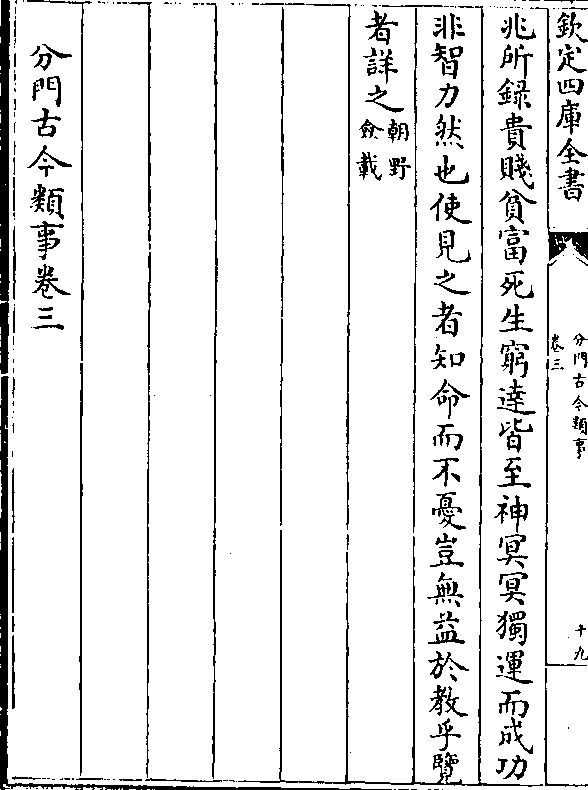 欽定四庫全書
分門古今類事
卷三
十九
兆所錄貴賤貧富死生窮達皆至神冥冥獨運而成功
非智力然也使見之者知命而不憂豈無益於教乎覽
者詳之朝野
僉載
分門古今類事卷三